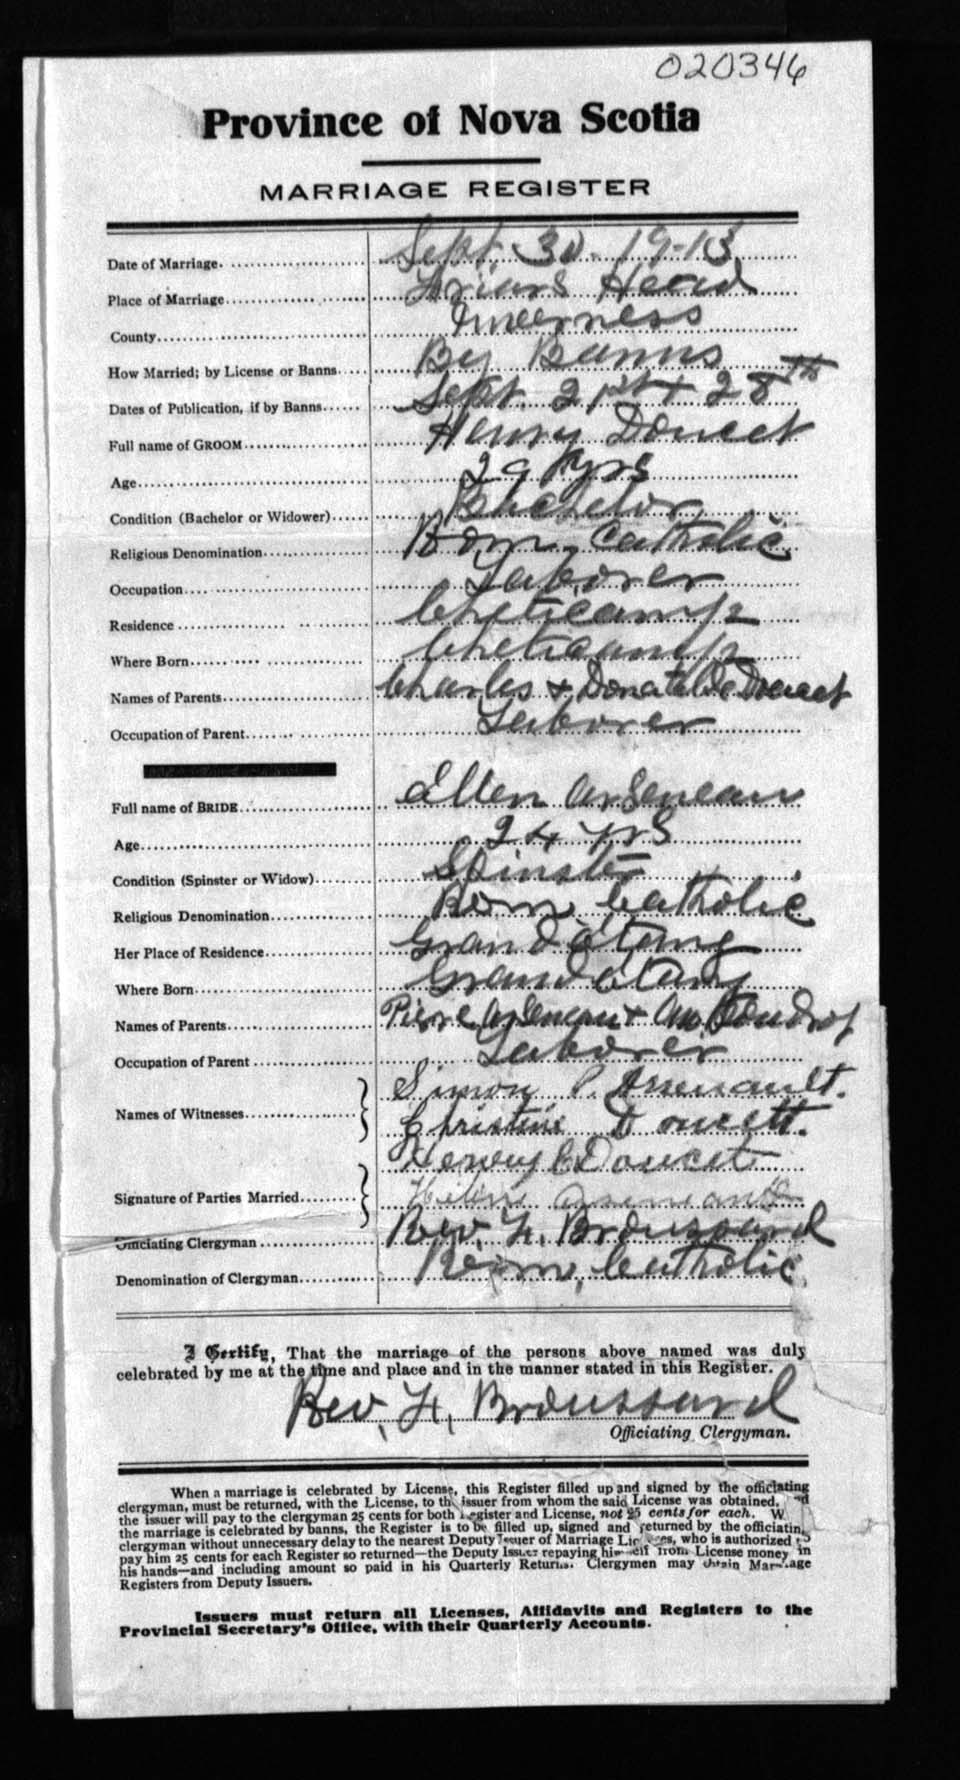 020346
Province of Nova Scotia
MARRIAGE REGISTER
Date of Marriage. Sept 30. 19-13
Place of Marriage Friars Head
County Inverness
How Married; by License or Banns By Banns
Dates of Publication, if by Banns Sept. 21st + 28th
Full name of GROOM Henry Doucet
Age 29 yrs
Condition (Bachelor or Widower) Bachelor
Religious Denomination Rom. Catholic
Occupation Laborer
Residence Cheticamp
Where Born Cheticamp
Names of Parents Charles + Donatilde Doucet
Occupation of Parent Laborer
Full name of BRIDE Ellen Arseneau
Age 24 yrs
Condition (Spinster or Widow) Spinster
Religious Denomination Rom. Catholic
Her Place of Residence Grand étang
Where Born Grand étang
Names of Parents Pierre Arseneau +
Occupation of Parent Laborer
Names of Witnesses Simon P. Arsenault.
Christine Doucett.
Signature of Parties Married Henry C Doucet
Officiating Clergyman Rev. H. Broussard
Denomination of Clergyman Rom. Catholic
I Certify, That the marriage of the persons above named was duly
celebrated by me at the time and place and in the manner stated in this Register.
Rev. H. Broussard
Officiating Clergyman.
When a marriage is celebrated by License, this Register filled up and signed by the officiating
clergyman, must be returned, with the License, to the issuer from whom the said License was obtained, and
the issuer will pay to the clergyman 25 cents for both Register and License, not 25 cents for each. W
the marriage is celebrated by banns, the Register is to be filled up, signed and returned by the officiatin
clergyman without unnecessary delay to the nearest Deputy Issuer of Marriage Licenses, who is authorized to
pay him 25 cents for each Register so returned—the Deputy Issuer repaying himself from License money in
his hands—and including amount so paid in his Quarterly Returns. Clergymen may obtain Marriage
Registers from Deputy Issuers.
Issuers must return all Licenses, Affidavits and Registers to the
Provincial Secretary's Office, with their Quarterly Accounts.